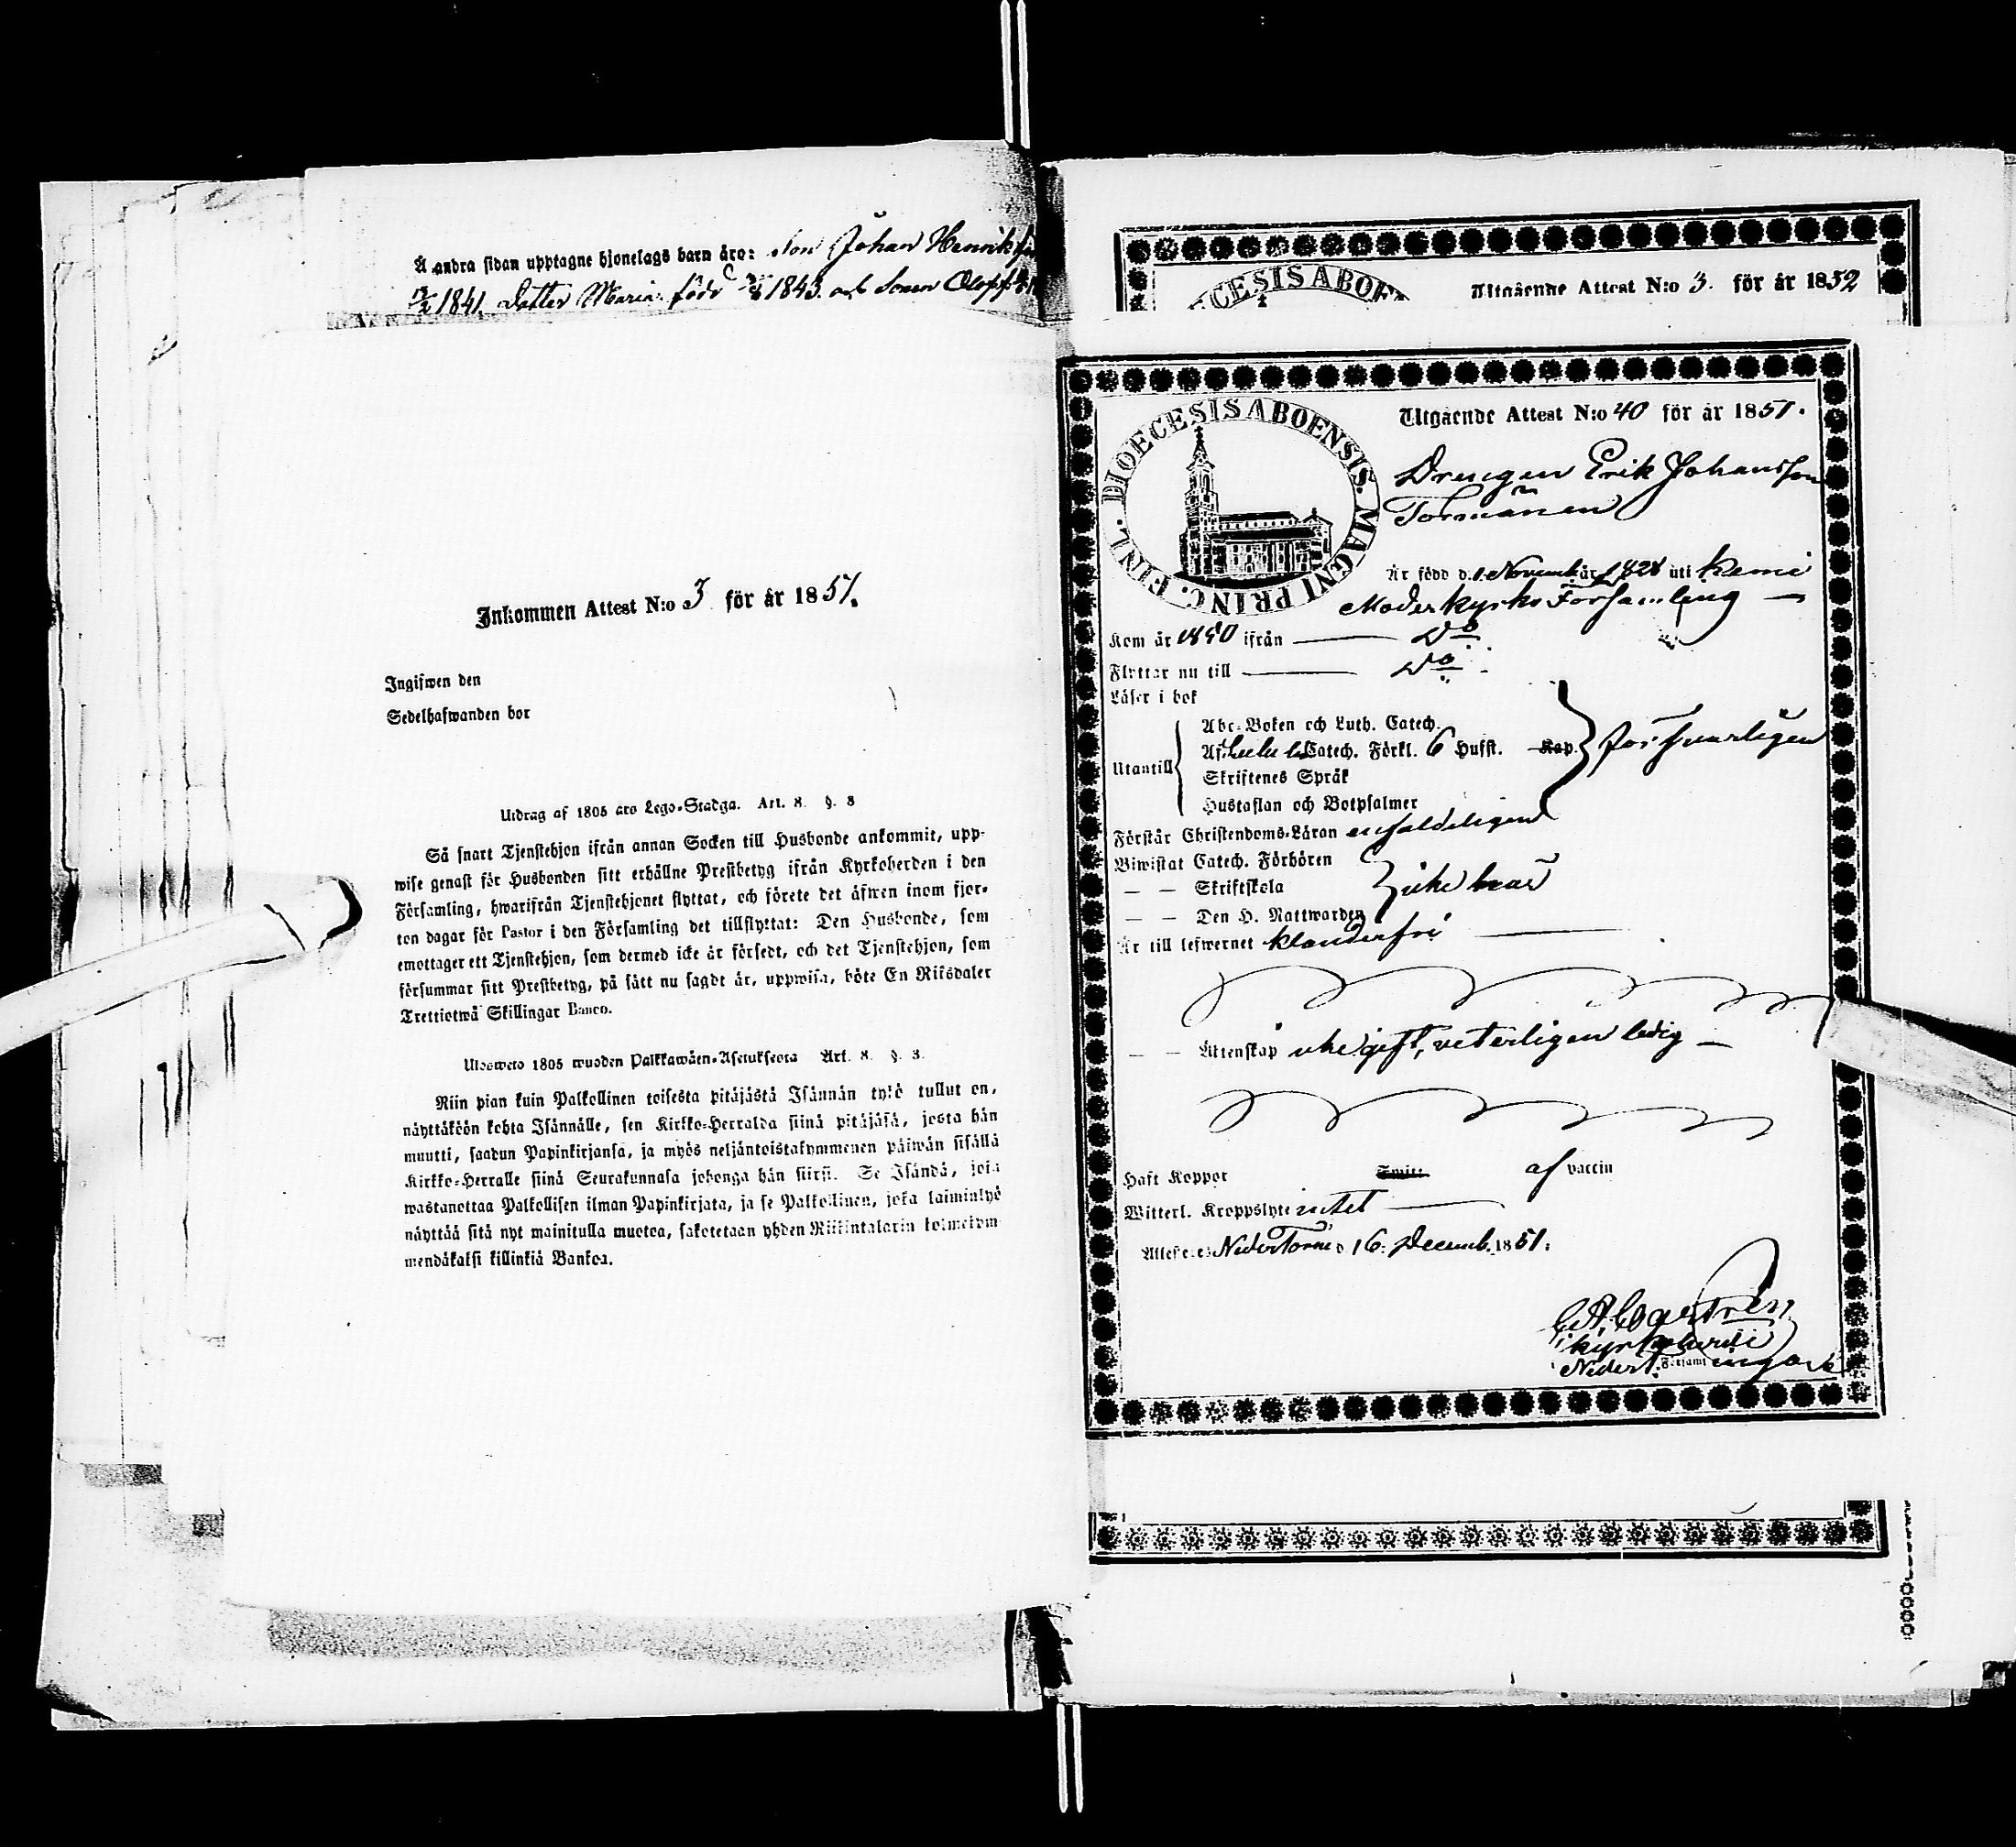 Å andra sidan upptagne hjonelags barn äro: Son Johan Henrik
1841. Dotter Maria född 1843. och Sonen Oloff
Inkommen Attest N:o 3 för år 1851.
Ingifwen den
Sedelhafwanden bor
Utdrag af 1805 års Lego-Stadga. Art. 8. §. 8
Så snart Tjenstehjon ifrån annan Socken till Husbonde ankommit, upp-
wise genast för Husbonden sitt erhållne Prestbetyg ifrån Kyrkoherden i den
Församling, hwarifrån Tjenstehjonet flyttat, och förete det äfwen inom fjor-
ton dagar för Pastor i den Församling det tillflyttat: Den Husbonde, som
emottager ett Tjenstehjon, som dermed icke är försedt, och det Tjenstehjon, som
försummar sitt Prestbetyg, på sätt nu sagdt är, uppwisa, böte En Riksdaler
Trettiotwå Skillingar Banco.
Ulosweto 1805 wuoden Palkkawäen-Asetuksesta Art. 8. §. 3.
Niin pian kuin Palkollinen toisesta pitäjästä Isännän tykö tullut on,
näyttäköön kohta Isännälle, sen Kirkko-Herralda siinä pitäjäsä, josta hän
muutti, saadun Papinkirjansa, ja myös neljäntoistakymmenen päiwän sisällä
Kirkko-Herralle siinä Seurakunnasa johonga hän siirsi. Se Isändä, joka
wastanottaa Palkollisen ilman Papinkirjata, ja se Palkollinen, joka laiminlyö
näyttää sitä nyt mainitulla muotoa, sakotetaan yhden Riikintalarin kolmekym-
mendäkaksi killinkiä Bankoa.
CESIS ABOEN
Utgående Attest N:o 3. för år 1852
DIOECESIS ABOENSIS. MAGNI PRINC. FINL.
Utgående Attest N:o 40 för år 1851.
Drengen Erik Johansson
Tormänen
Är född d. 1. Novemb. år 1828 uti Kemi
Moderkyrko Församling —
Kom år 1850 ifrån — Do
Flyttar nu till — Do
Läser i bok
Utantill
Abc-Boken och Luth. Catech.
Af hela Catech. Förkl. 6 Hufst. Kap. försvarligen
Skriftenes Språk
Hustaflan och Botpsalmer
Förstår Christendoms-Läran enfaldeligen
Biwistat Catech. Förhören
— — Skriftskola icke här
— — Den H. Nattwarden
Är till lefwernet klanderfri —
— — Äktenskap icke gift, veterligen ledig —
Haft Koppor af vaccin
Witterl. Kroppslyte intet —
Attesteres Neder Torneå 16. Decemb. 1851.
C A Castrén
kyrkoherde i
Nedert. Församl